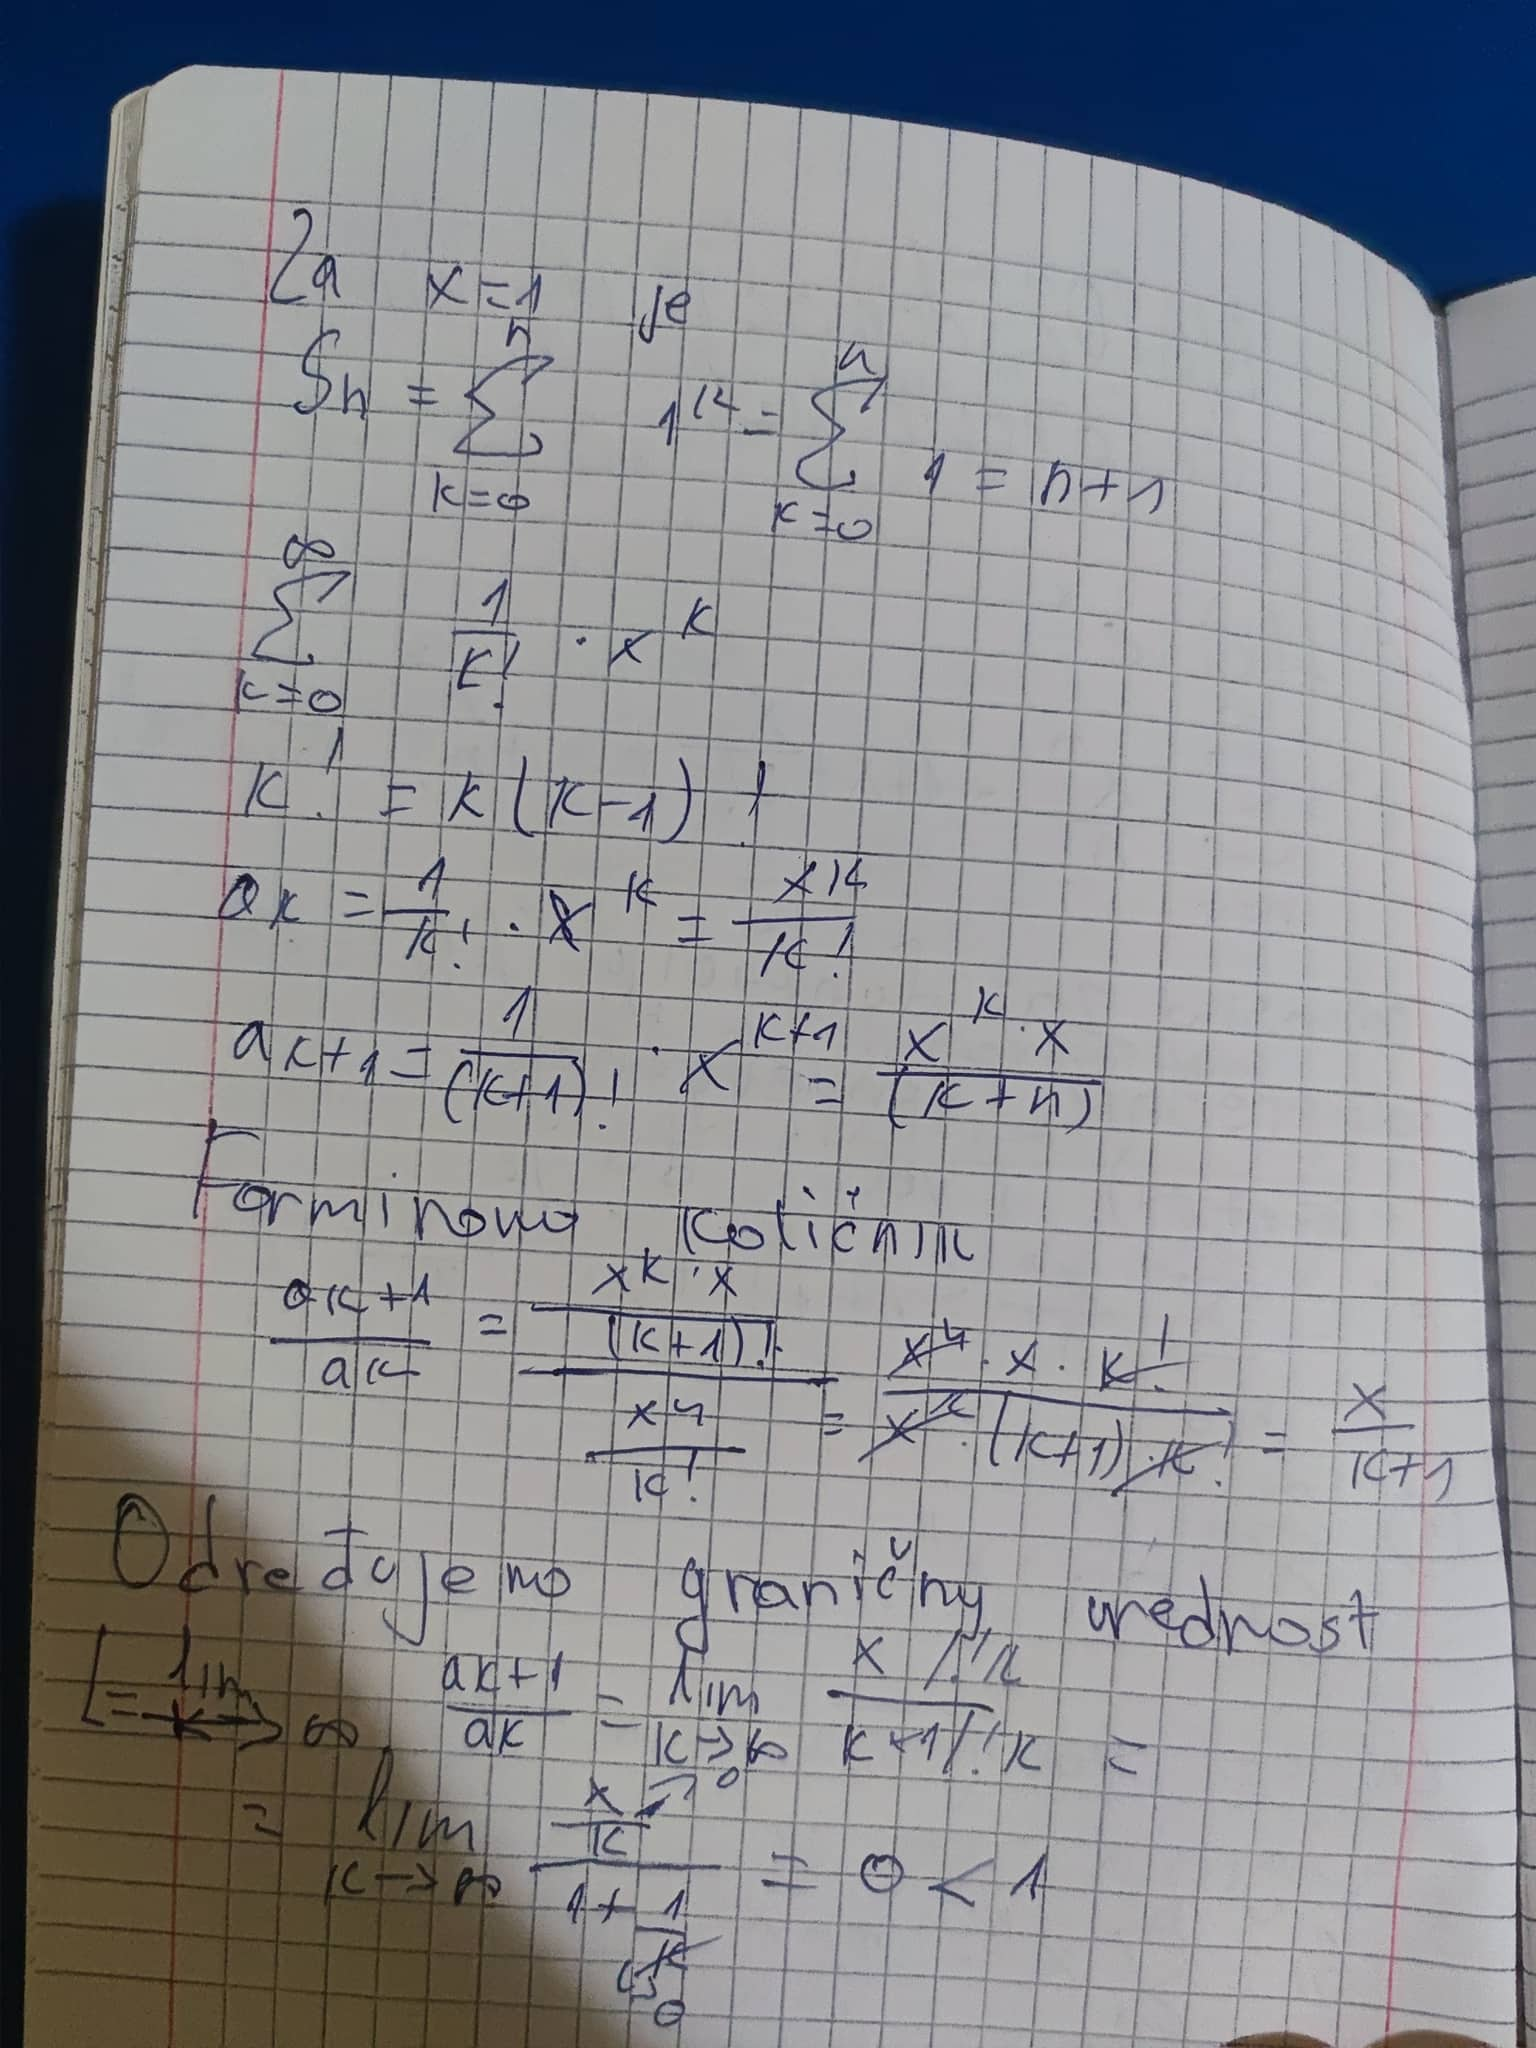 Za x=1 je
Sn = n∑k=0 1^k = n∑k=0 1 = n+1
∞∑k=0 1/k! · x^k
k! = k(k-1)!
ak = 1/k! · x^k = x^k/k!
ak+1 = 1/(k+1)! · x^k+1 = x^k · x/(k+n)
Formiromo količnik
ak+1/ak = (x^k · x/(k+1)!)/(x^k/k!) = x^k · x · k!/x^k · (k+1) · k! = x/k+1
Određujemo graničnu vrednost
L = lim k→∞ ak+1/ak = lim k→∞ x /:k/k+1 /:k =
= lim k→∞ (x/k →0)/(1+1/k ↳0) = 0 < 1